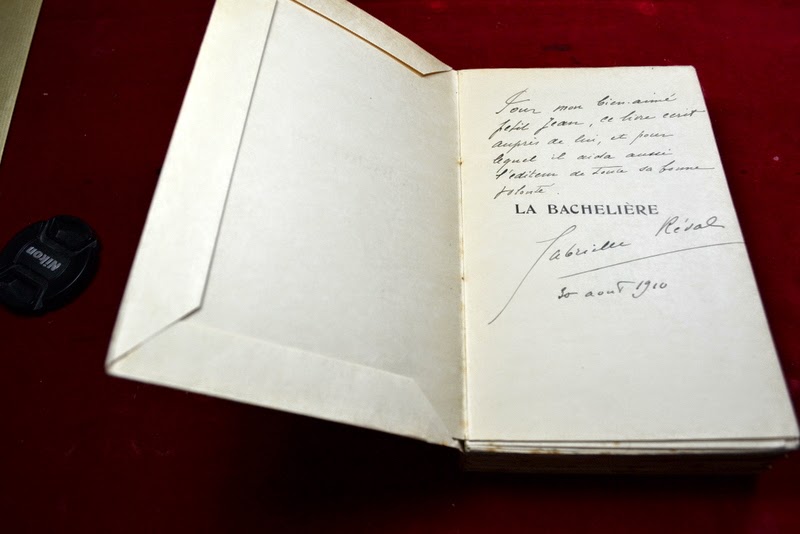 Pour mon bien-aimé
petit Jean, ce livre écrit
auprès de lui, et pour
lequel il aida aussi
l'éditeur de toute sa bonne
volonté.
LA BACHELIÈRE
Gabrielle Réval
30 août 1910
Nikon